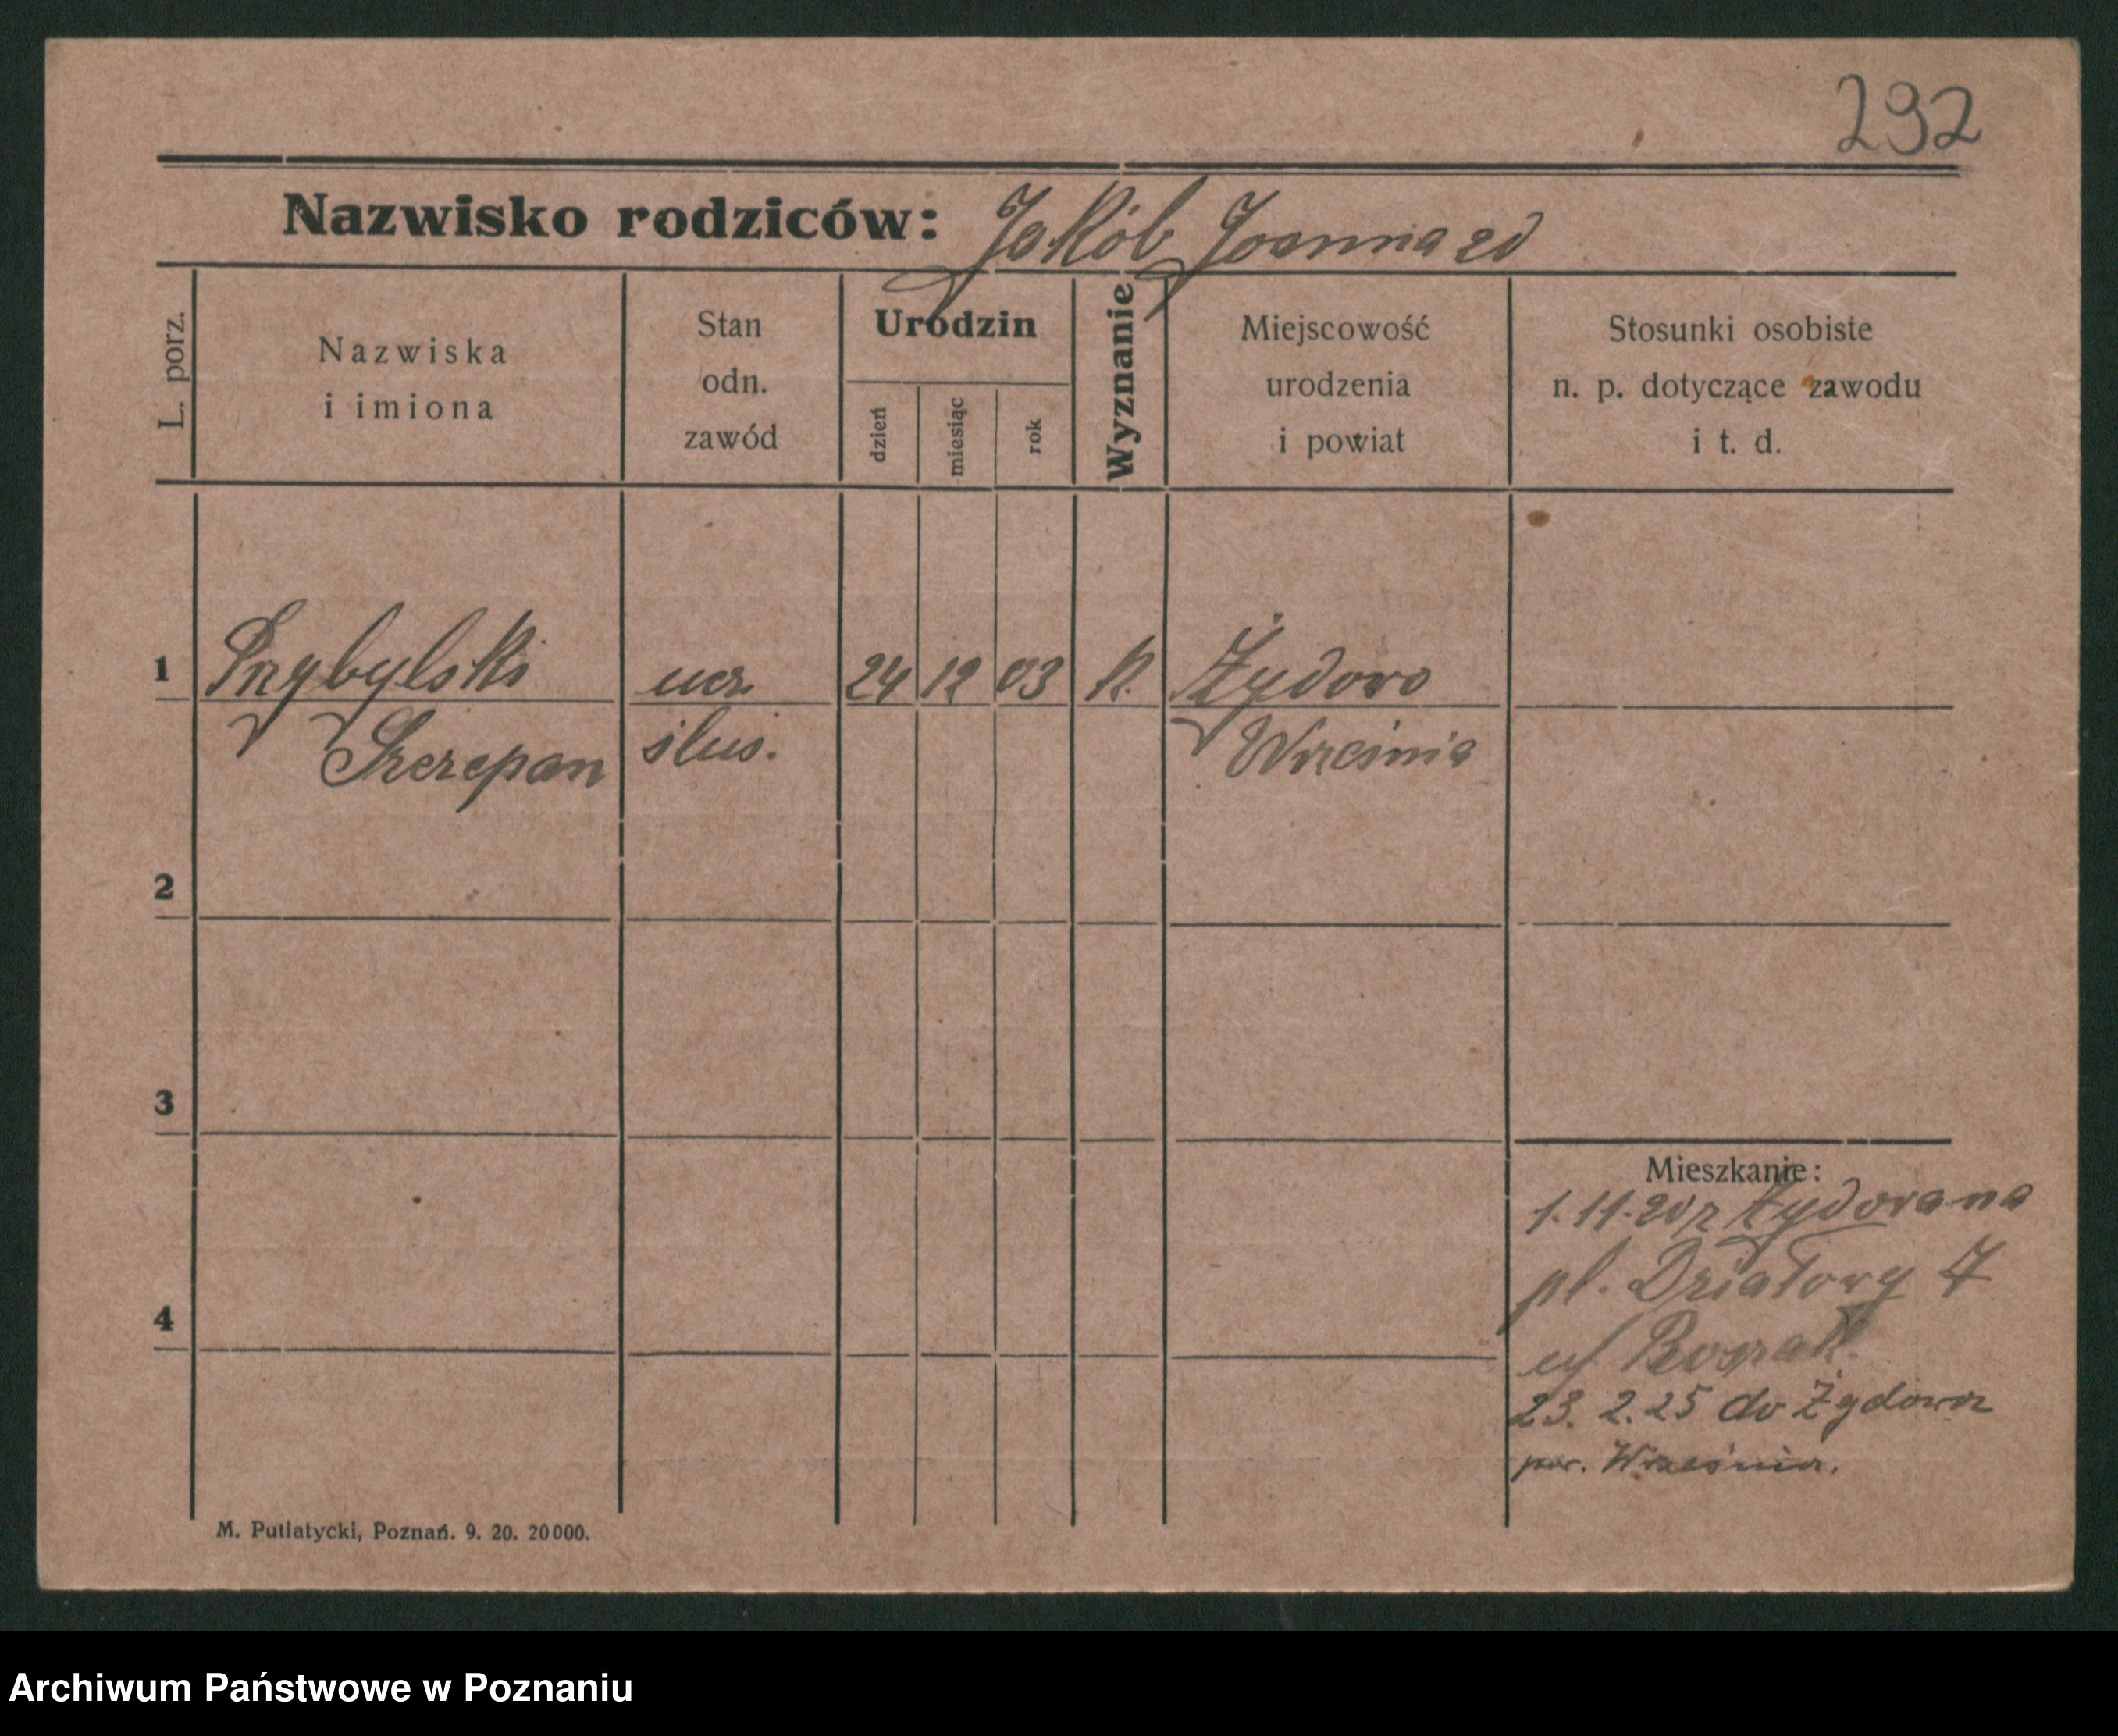 292
Nazwisko rodziców: Jakób Joanna zd
L. porz.
Nazwiska
i imiona
Stan
odn.
zawód
Urodzin
dzień
miesiąc
rok
Wyznanie
Miejscowość
urodzenia
i powiat
Stosunki osobiste
n. p. dotyczące zawodu
i t. d.
1 Przybylski ucz. 24 12 03 K. Żydowo
Szczepan ślus. Września
2
3
4
Mieszkanie:
1.11.20 z Żydowa na
pl. Działowy 7
u/
23. 2. 25 do Żydowa
pow. Września.
M. Putiatycki, Poznań. 9. 20. 20000.
Archiwum Państwowe w Poznaniu